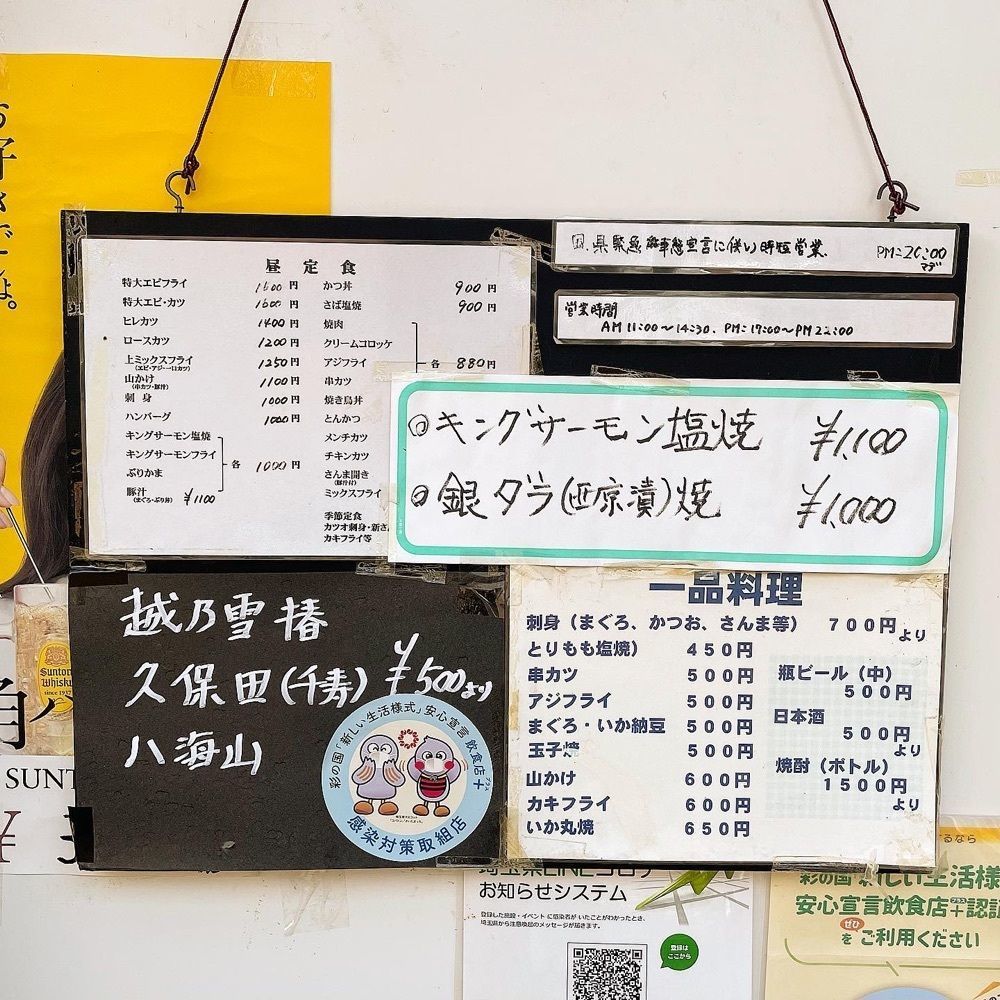 お好きでしょ。
昼定食
特大エビフライ 1600円
特大エビ・カツ 1600円
ヒレカツ 1400円
ロースカツ 1200円
上ミックスフライ 1250円
(エビ・アジ・一口カツ)
山かけ 1100円
(串カツ・豚汁)
刺身 1000円
ハンバーグ 1000円
キングサーモン塩焼
キングサーモンフライ 各 1000円
ぶりかま
豚汁 ¥1100
(まぐろ・ぶり丼)
かつ丼 900円
さば塩焼 900円
焼肉
クリームコロッケ
アジフライ 各 880円
串カツ
焼き鳥丼
とんかつ
メンチカツ
チキンカツ
さんま開き
(豚汁付)
ミックスフライ
季節定食
カツオ刺身・新さ
カキフライ等
県緊急事態宣言に伴い時短営業. PM=20:00
マデ
営業時間
AM 11:00〜14:30. PM=17:00〜PM22:00
◎キングサーモン塩焼 ¥1,100
◎銀ダラ(西京漬)焼 ¥1,000
越乃雪椿
久保田(千寿) ¥500より
八海山
彩の国「新しい生活様式」安心宣言飲食店+
プラス
感染対策取組店
一品料理
刺身(まぐろ、かつお、さんま等) 700円より
とりもも塩焼) 450円
串カツ 500円
アジフライ 500円
まぐろ・いか納豆 500円
玉子焼 500円
山かけ 600円
カキフライ 600円
いか丸焼 650円
瓶ビール(中)
500円
日本酒
500円
より
焼酎(ボトル)
1500円
より
Suntory
Whisky
since 1937
角ハ
SUNT
¥
埼玉県LINEコロナ
お知らせシステム
登録した施設・イベントに感染者がいたことがわかったとき、
埼玉県から注意喚起のメッセージが届きます。
登録は
ここから
するなら
彩の国 新しい生活様
安心宣言飲食店+認証
プラス
ぜひ
をご利用ください